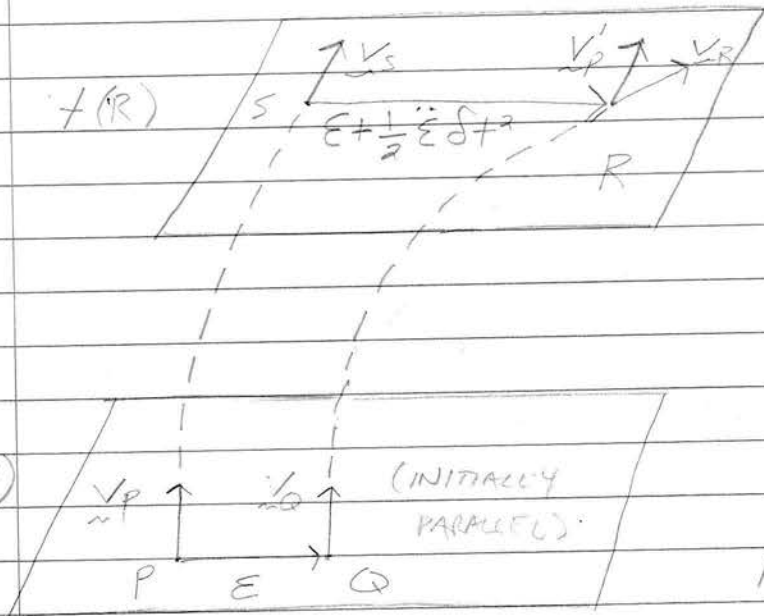 V_S V_P' V_R
t(R) S
ε + 1/2 ε̈ δt²
R
V_P V_Q (INITIALLY
PARALLEL).
P ε Q